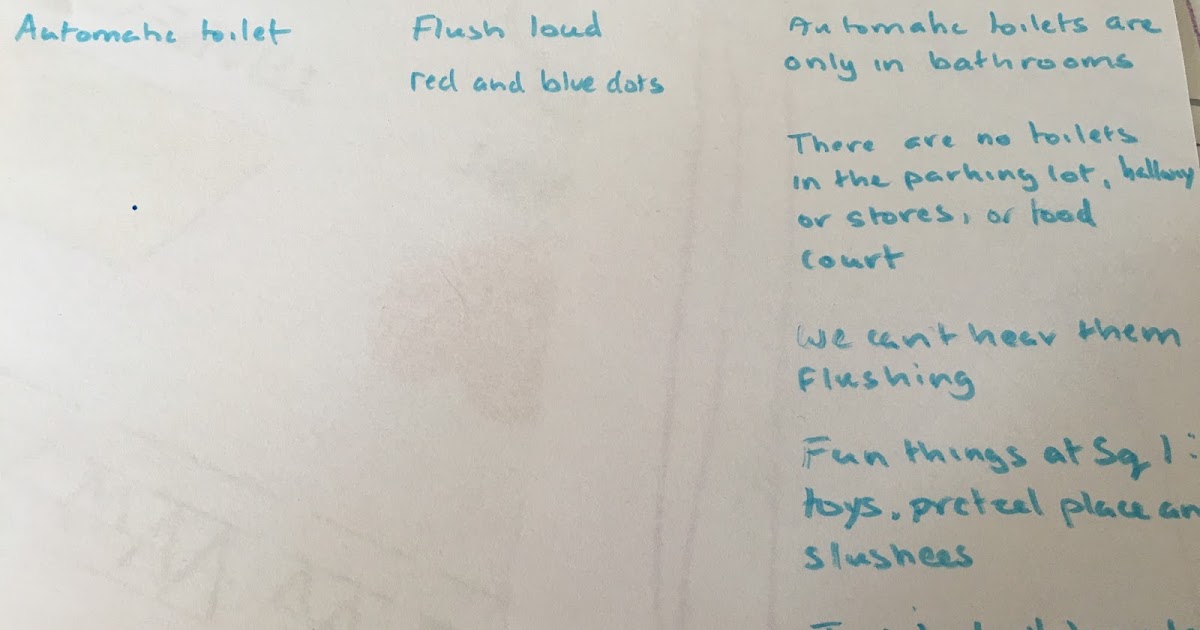 Automatic toilet
Flush loud
red and blue dots
Automatic toilets are
only in bathrooms
There are no toilets
in the parking lot, hallway
or stores, or food
court
We can't hear them
flushing
Fun things at Sq 1:
toys, pretzel place an
slushees